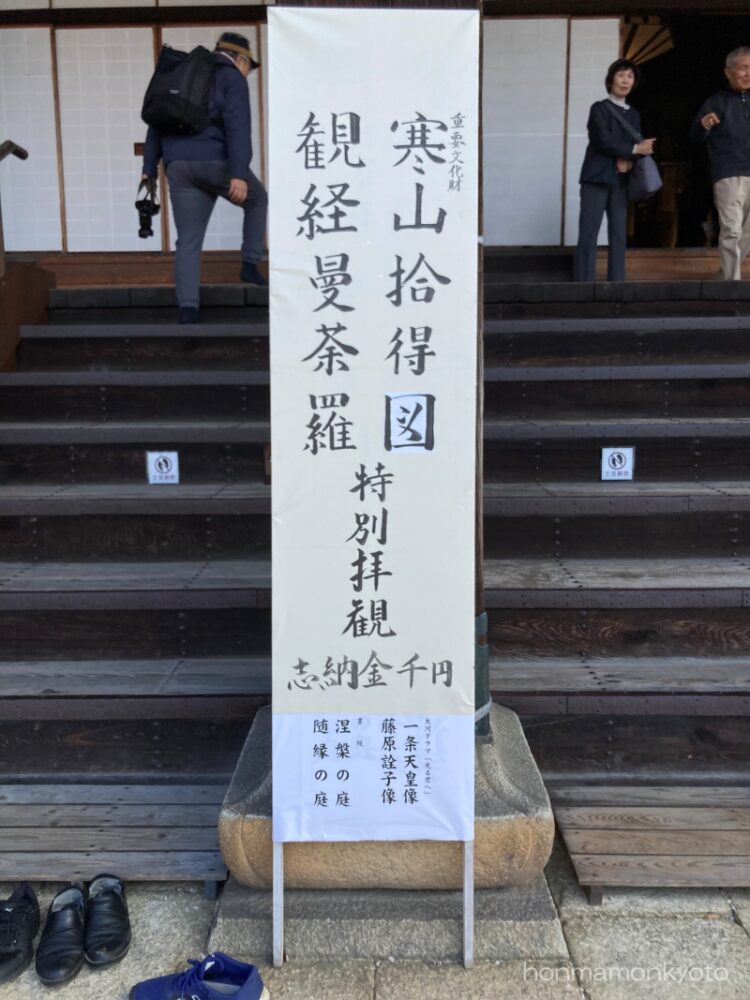 重要文化財
寒山拾得図
観経曼荼羅
特別拝観
志納金千円
大河ドラマ「光る君へ」
一条天皇像
藤原詮子像
書院
涅槃の庭
随縁の庭
土足厳禁
土足厳禁
honmamonkyoto